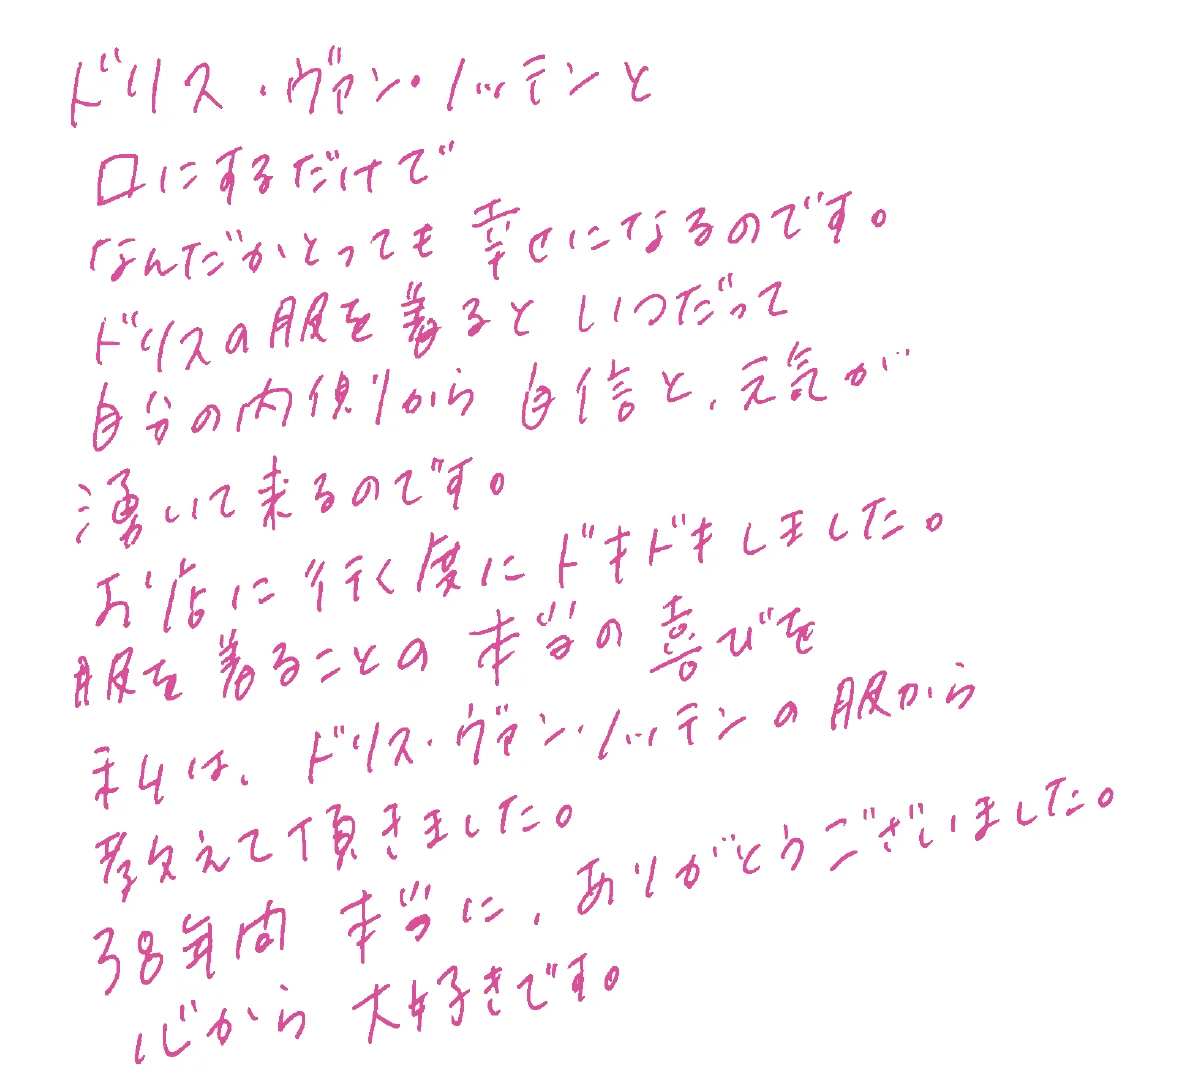 ドリス・ヴァン・ノッテンと
口にするだけで
なんだかとっても 幸せになるのです。
ドリスの服を着ると いつだって
自分の内側から 自信と、元気が
湧いて来るのです。
お店に行く度にドキドキしました。
服を着ることの 本当の喜びを
私は、ドリス・ヴァン・ノッテンの服から
教えて頂きました。
38年間 本当に、ありがとうございました。
心から 大好きです。